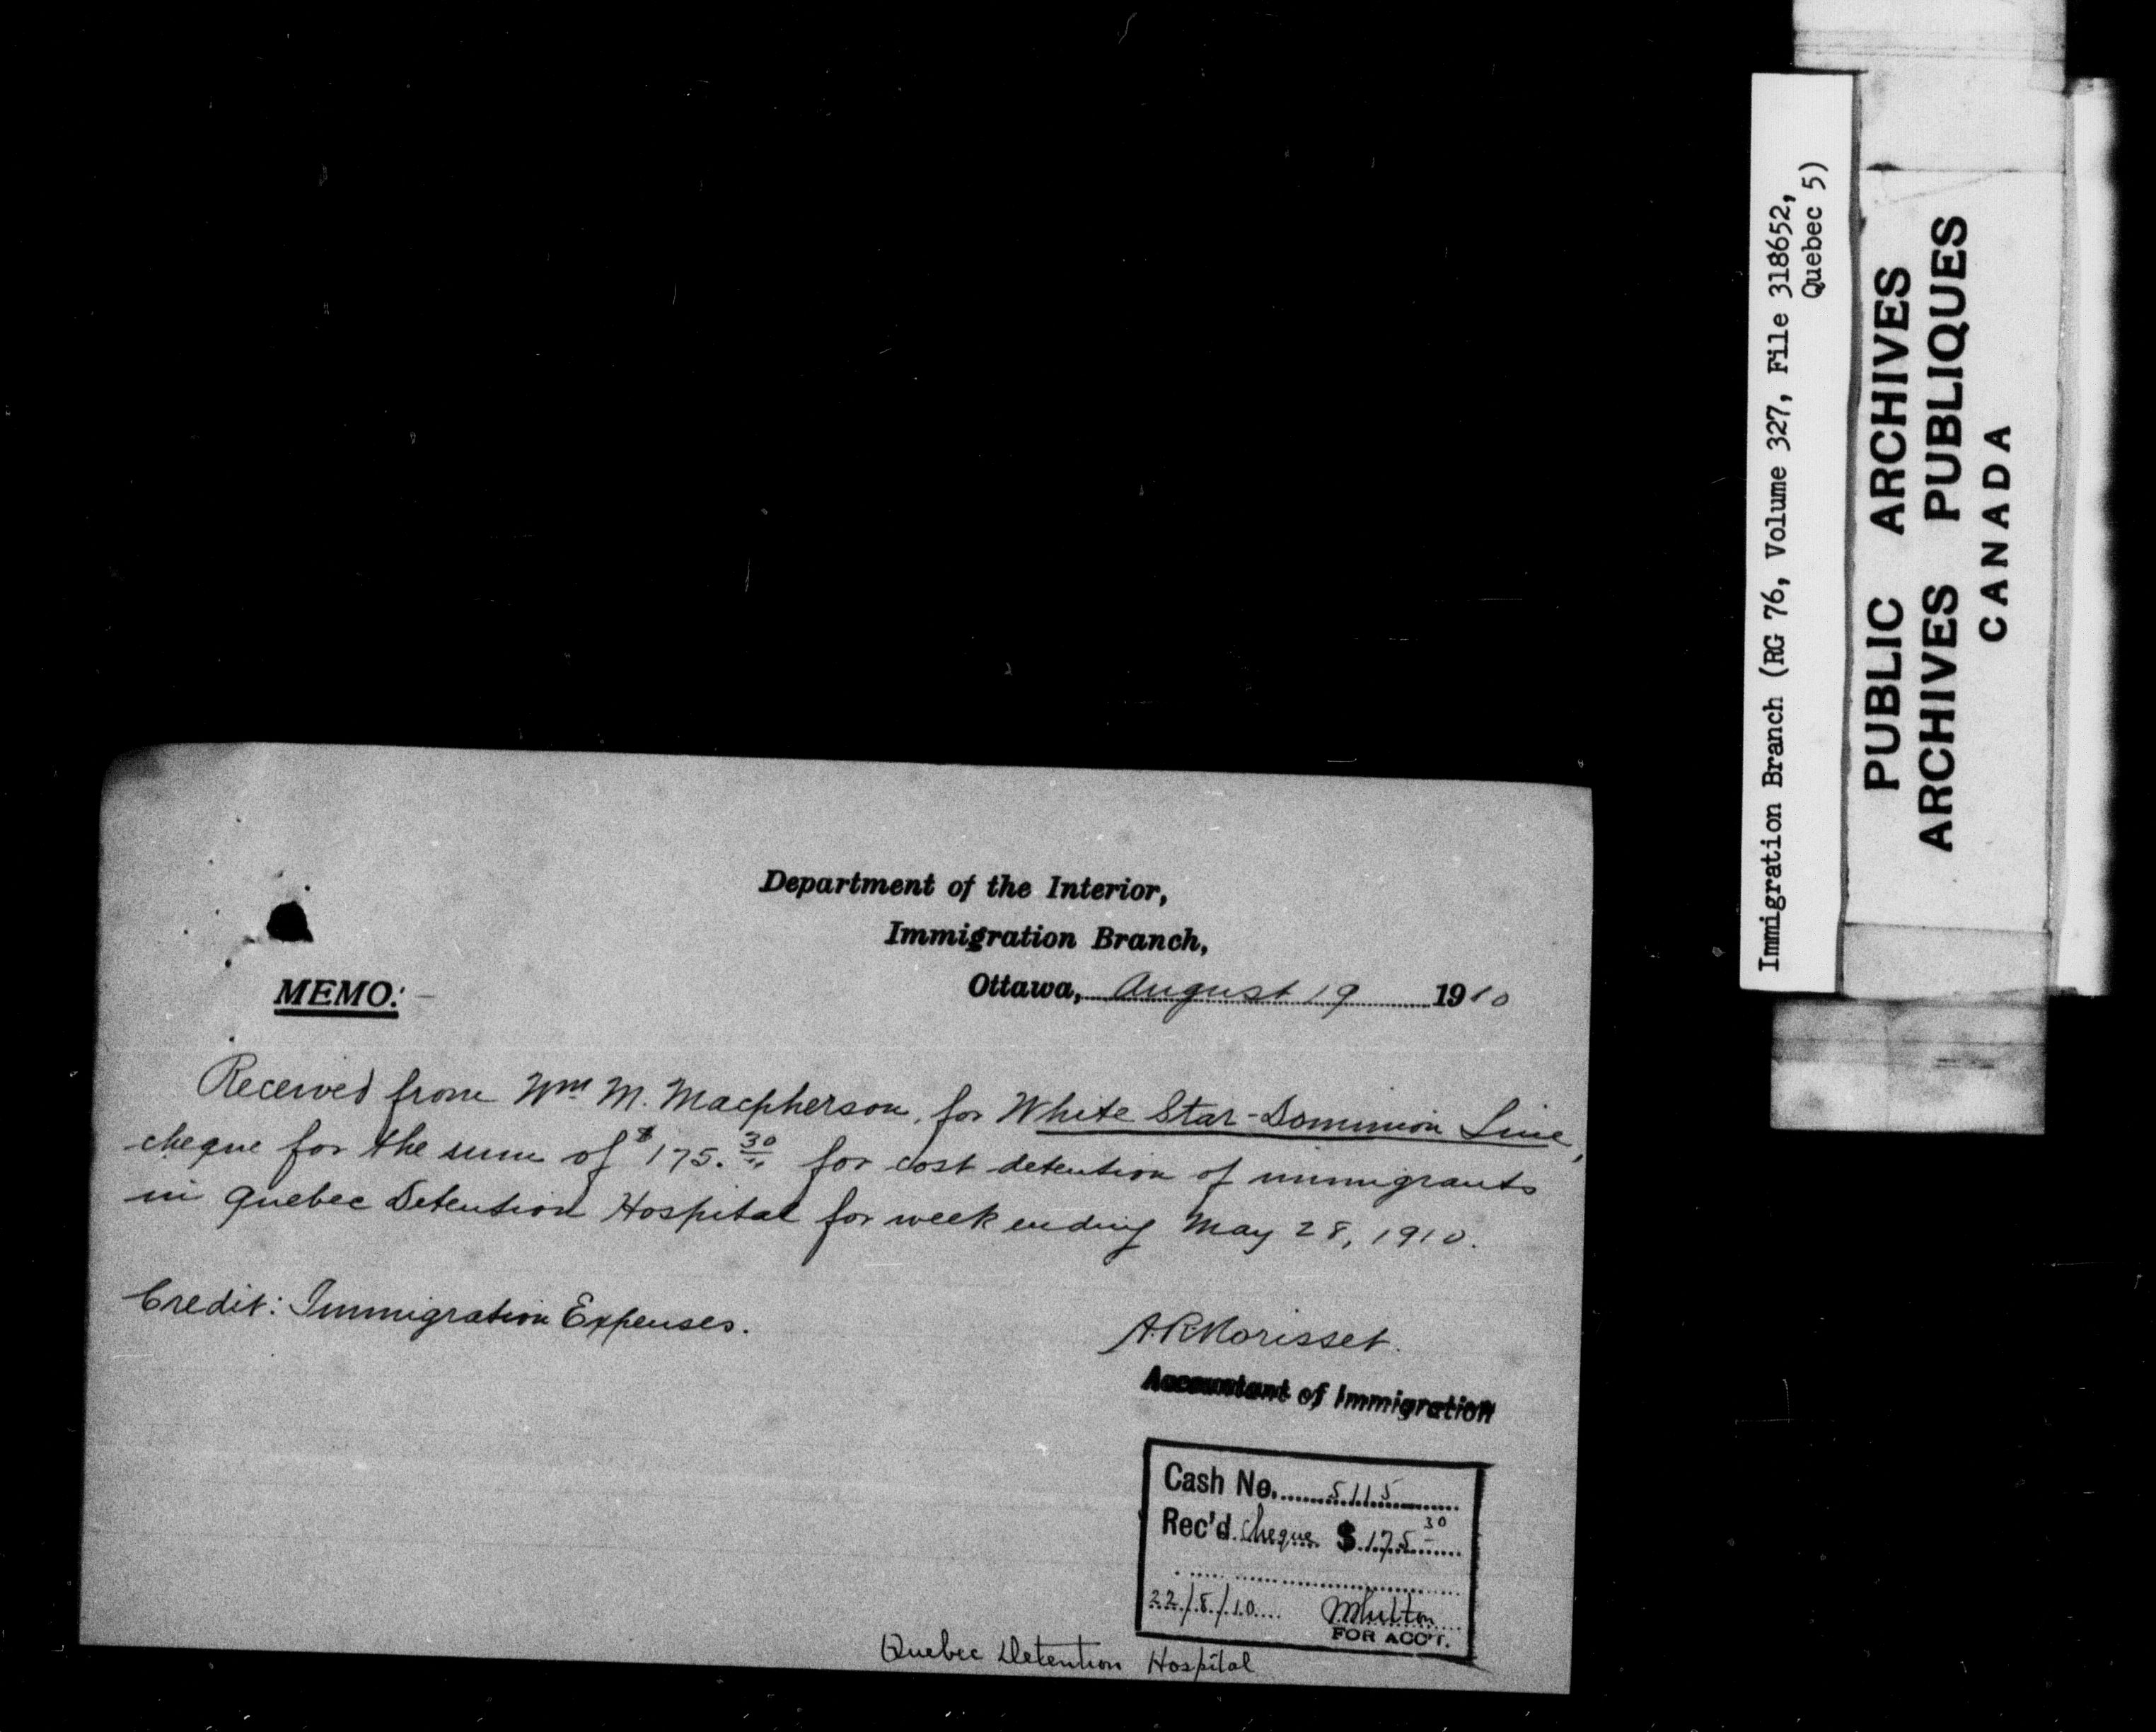 Department of the Interior,
Immigration Branch,
Ottawa, August 19 1910
MEMO:
Received from Wm M. Macpherson, for White Star-Dominion Line,
cheque for the sum of $175.30 for cost detention of immigrants
in Quebec Detention Hospital for week ending May 28, 1910.
Credit: Immigration Expenses.
A.R. Morisset.
Accountant of Immigration
Cash No. 5115
Rec'd. cheque $175 30
22/8/10
FOR ACC'T.
Quebec Detention Hospital
Immigration Branch (RG 76, Volume 327, File 318652,
Quebec 5)
PUBLIC ARCHIVES
ARCHIVES PUBLIQUES
CANADA